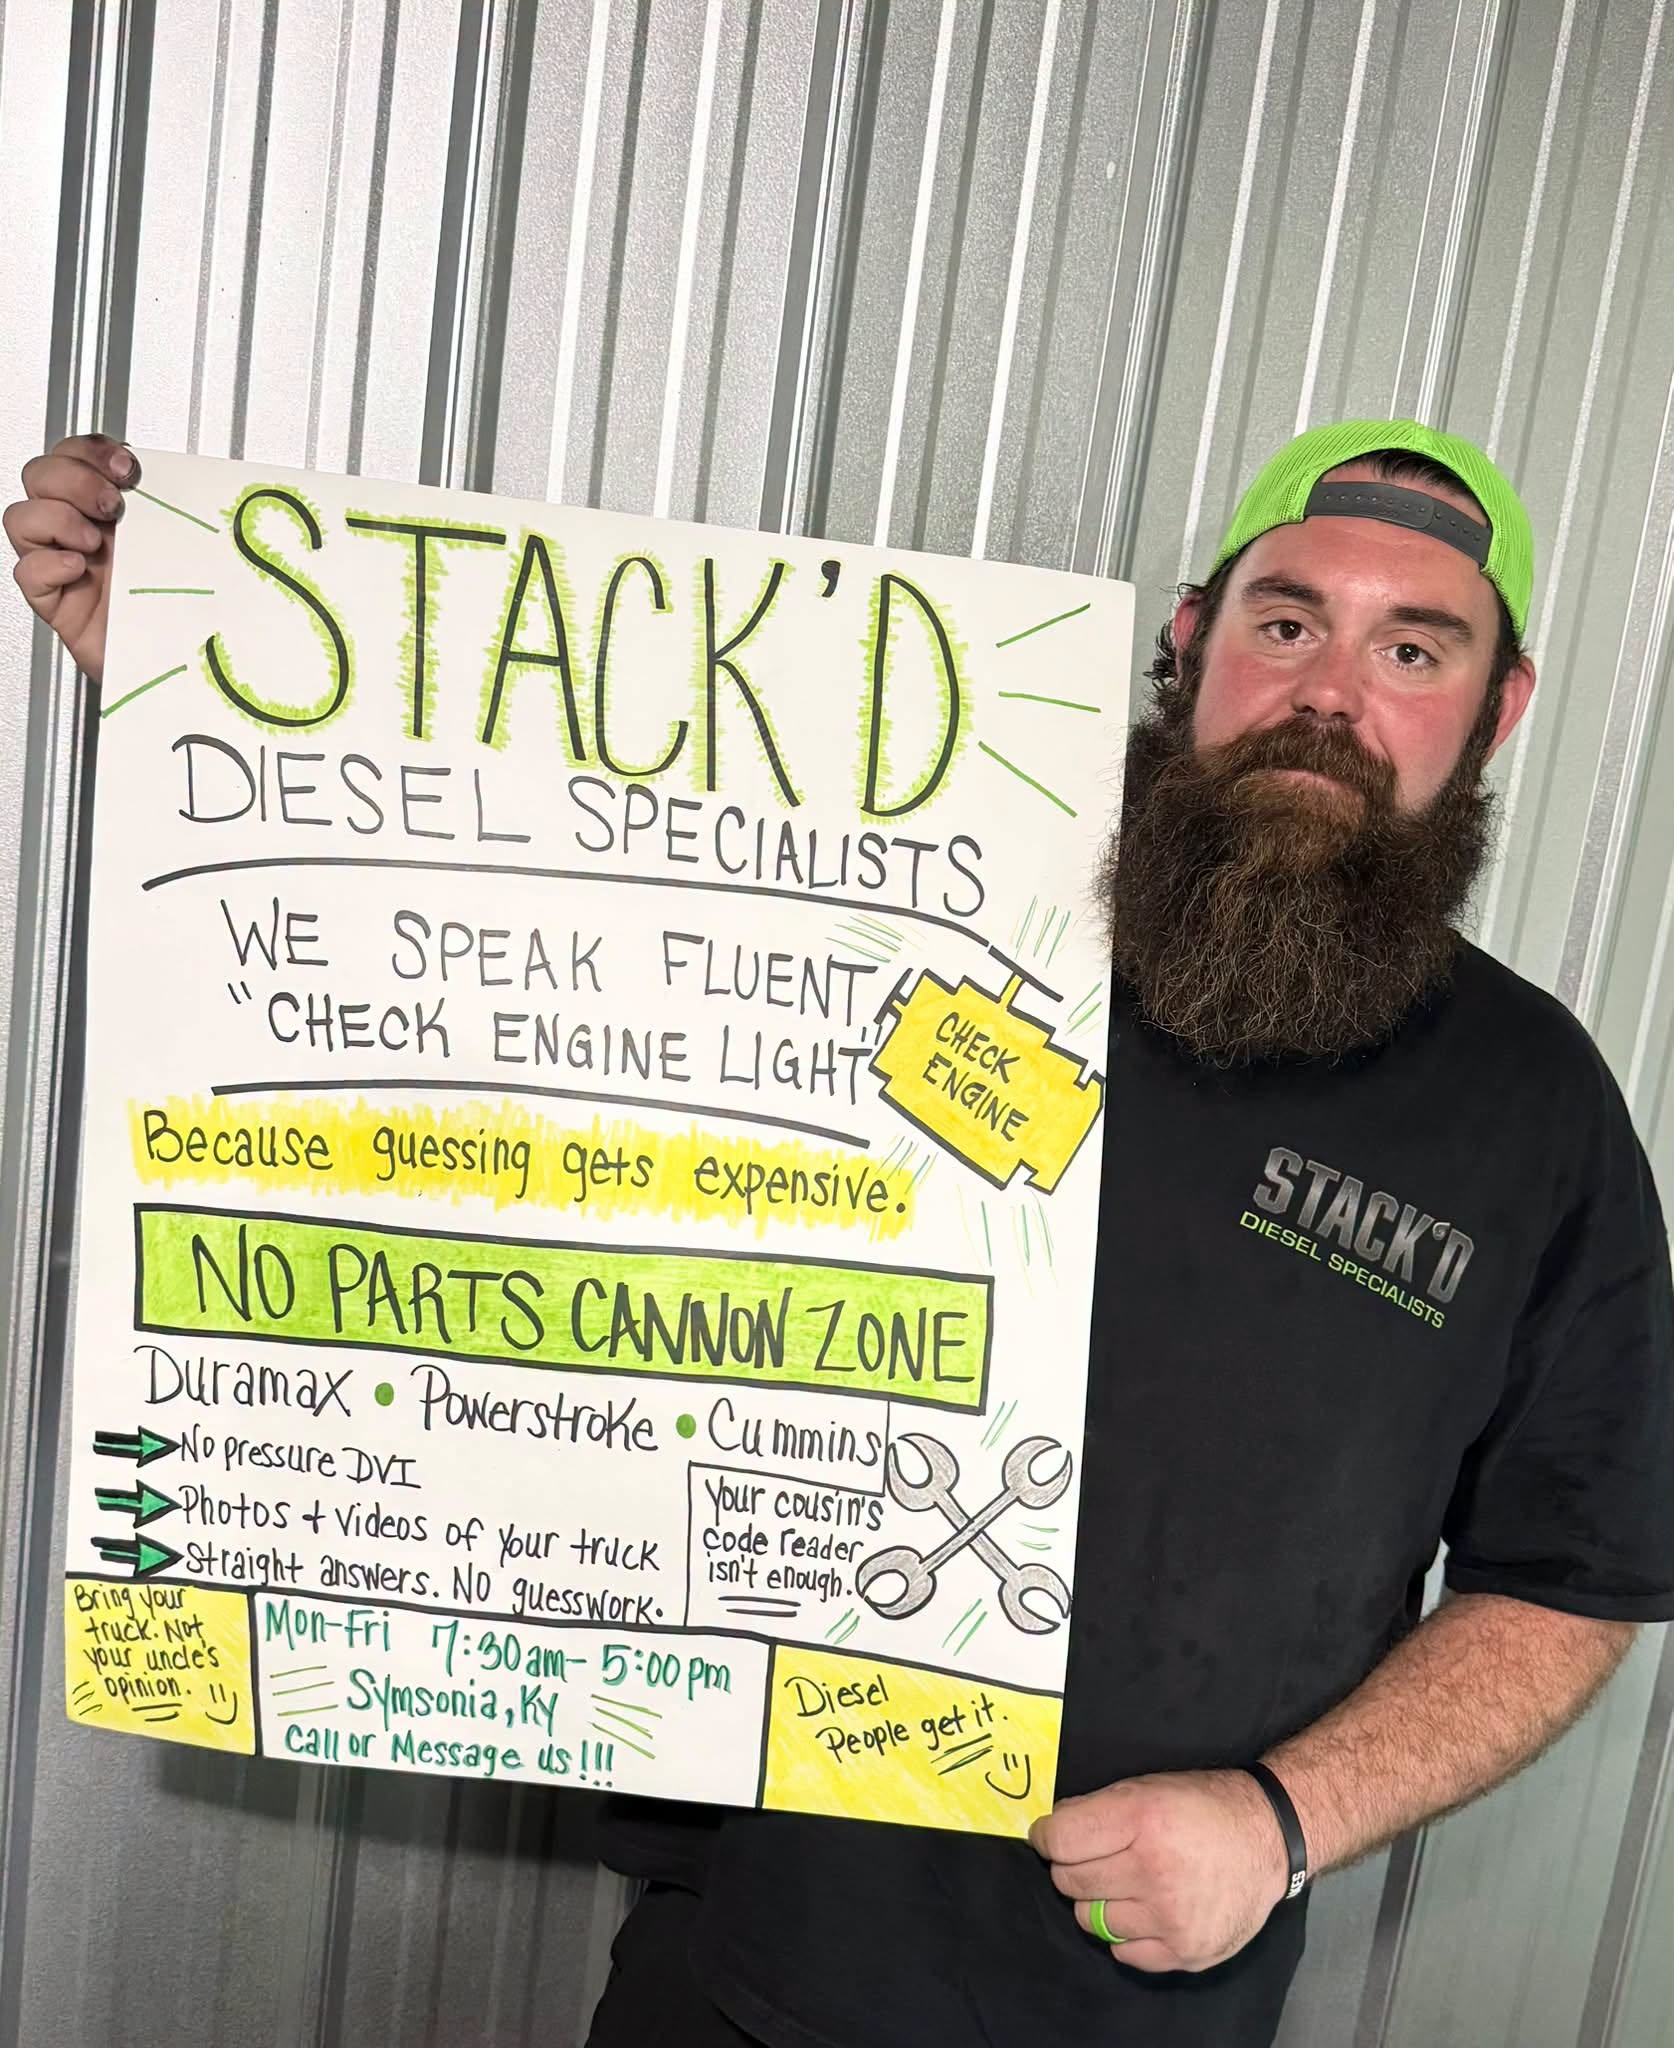 STACK'D
DIESEL SPECIALISTS
WE SPEAK FLUENT
"CHECK ENGINE LIGHT"
CHECK
ENGINE
Because guessing gets expensive.
NO PARTS CANNON ZONE
Duramax • Powerstroke • Cummins
No pressure DVI
Photos + Videos of your truck
Straight answers. NO guesswork.
Your cousin's
code reader
isn't enough.
Bring your
truck. Not
your uncle's
opinion.
Mon-Fri 7:30am-5:00pm
Symsonia, Ky
Call or Message us!!!
Diesel
People get it.
STACK'D
DIESEL SPECIALISTS